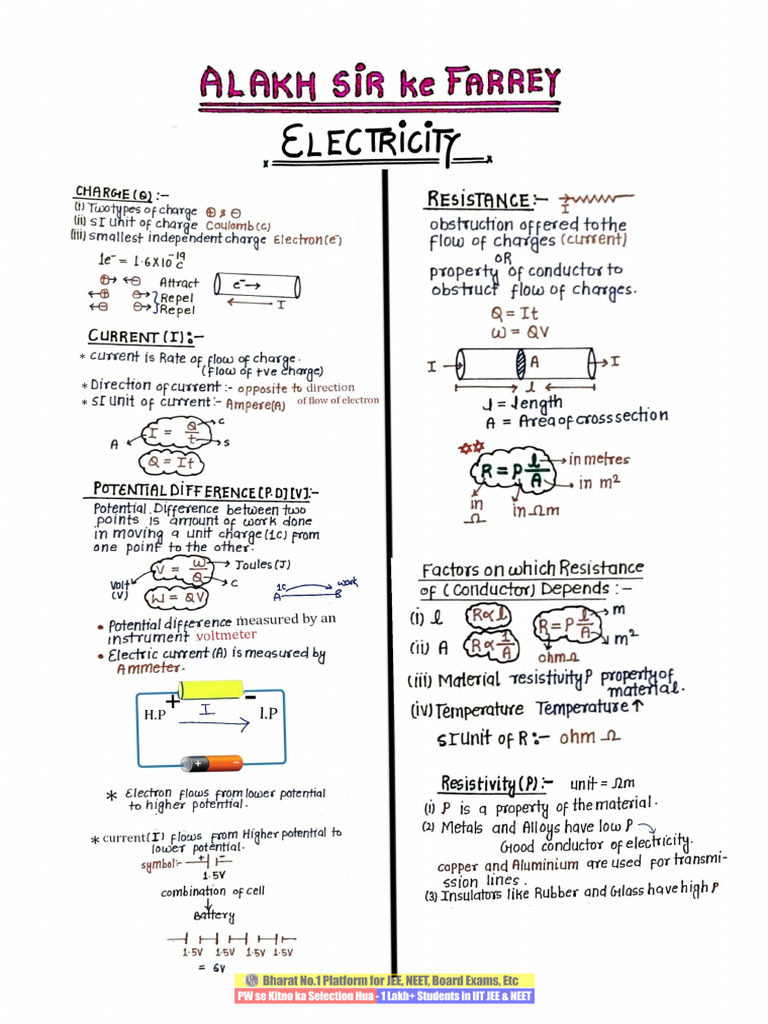 ALAKH SIR ke FARREY
ELECTRICITY
CHARGE(Q) :-
(i) Two types of charge ⊕ & ⊖
(ii) SI Unit of charge Coulomb(c)
(iii) smallest independent charge Electron(e⁻)
1e⁻ = 1.6X10⁻¹⁹ C
⊕→ ←⊖ Attract
←⊕ ⊖→ Repel
←⊖ ⊖→ Repel
e⁻→
← I
CURRENT(I):-
* current is Rate of flow of charge.
(flow of +ve charge)
* Direction of current :- opposite to direction
of flow of electron
* SI Unit of current:- Ampere(A)
A I = Q/t C S
Q = It
POTENTIAL DIFFERENCE[P.D][V]:-
Potential Difference between two
points is amount of work done
in moving a unit charge(1c) from
one point to the other.
Volt (V) V = W/Q Joules(J) C
W = QV
1C work
A B
• Potential difference measured by an
instrument voltmeter
• Electric current(A) is measured by
Ammeter.
+ −
H.P I l.P
− +
* Electron flows from lower potential
to higher potential.
* current(I) flows from Higher potential to
lower potential.
symbol:- + −
1.5V
combination of cell
↓
Battery
1.5V 1.5V 1.5V 1.5V
= 6V
RESISTANCE:-
I
obstruction offered to the
flow of charges (current)
OR
property of conductor to
obstruct flow of charges.
Q = It
W = QV
I→ A →I
l
l = length
A = Area of cross section
R = ρ l/A
in metres
in m²
in Ω
in Ωm
Factors on which Resistance
of (Conductor) Depends :-
(i) l R∝l
(ii) A R∝1/A
R = ρ l/A m m²
ohm Ω
(iii) Material resistivity ρ property of
material.
(iv) Temperature Temperature↑
SI Unit of R :- ohm Ω
Resistivity(ρ):- unit = Ωm
(i) ρ is a property of the material.
(2) Metals and Alloys have low ρ
Good conductor of electricity.
copper and Aluminium are used for transmi-
ssion lines.
(3) Insulators like Rubber and Glass have high ρ
Bharat No.1 Platform for JEE, NEET, Board Exams, Etc
PW se Kitno ka Selection Hua - 1 Lakh+ Students in IIT JEE & NEET